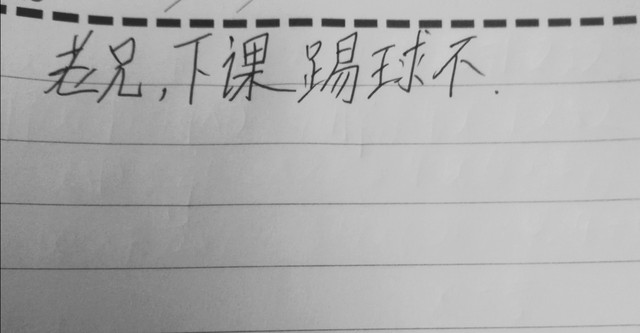 老兄,下课踢球不.